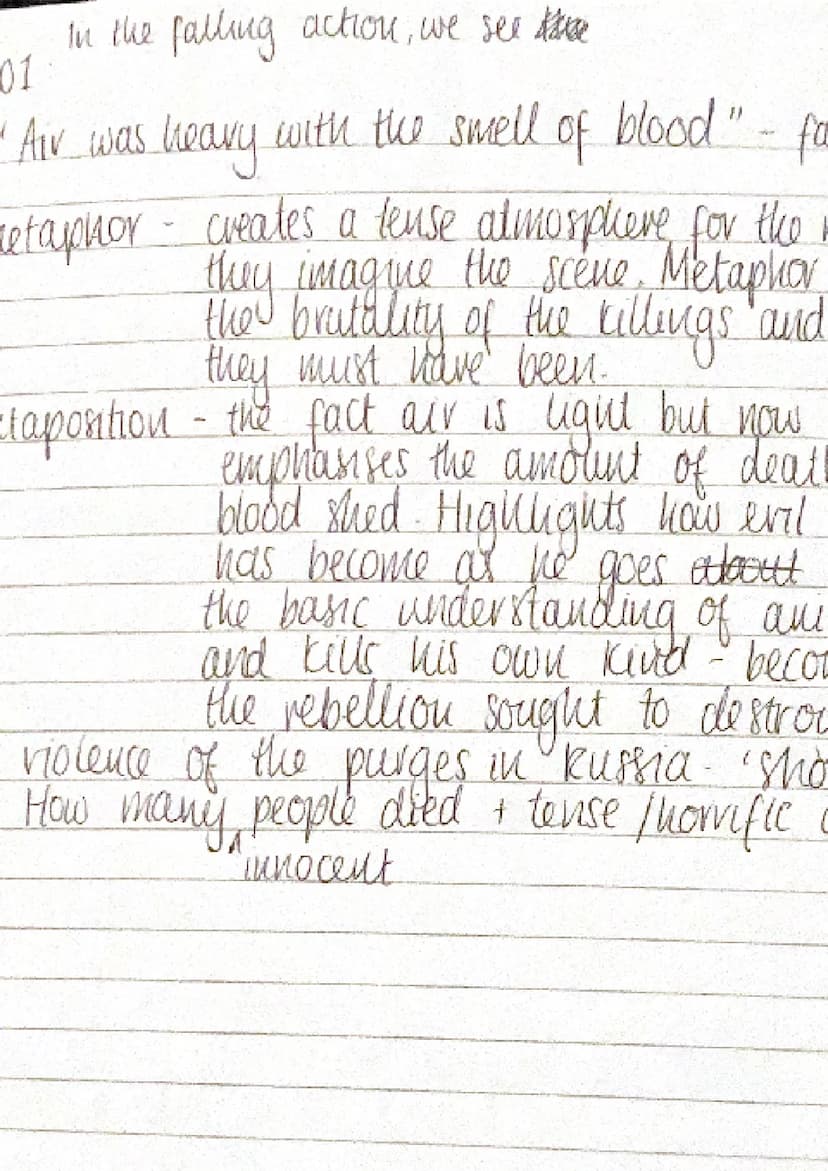 In the falling action, we see
01
"Air was heavy with the smell of blood" - fa
etaphor - creates a tense atmosphere for the
they imagine the scene. Metaphor
the brutality of the killings and
they must have been.
taposition - the fact air is light but now
emphasises the amount of deat
blood shed. Highlights how evil
has become as he goes about
the basic understanding of ani
and kills his own kind - beco
the rebellion sought to destro
violence of the purges in Russia - 'sho
How many people died + tense / horrific
^ innocent